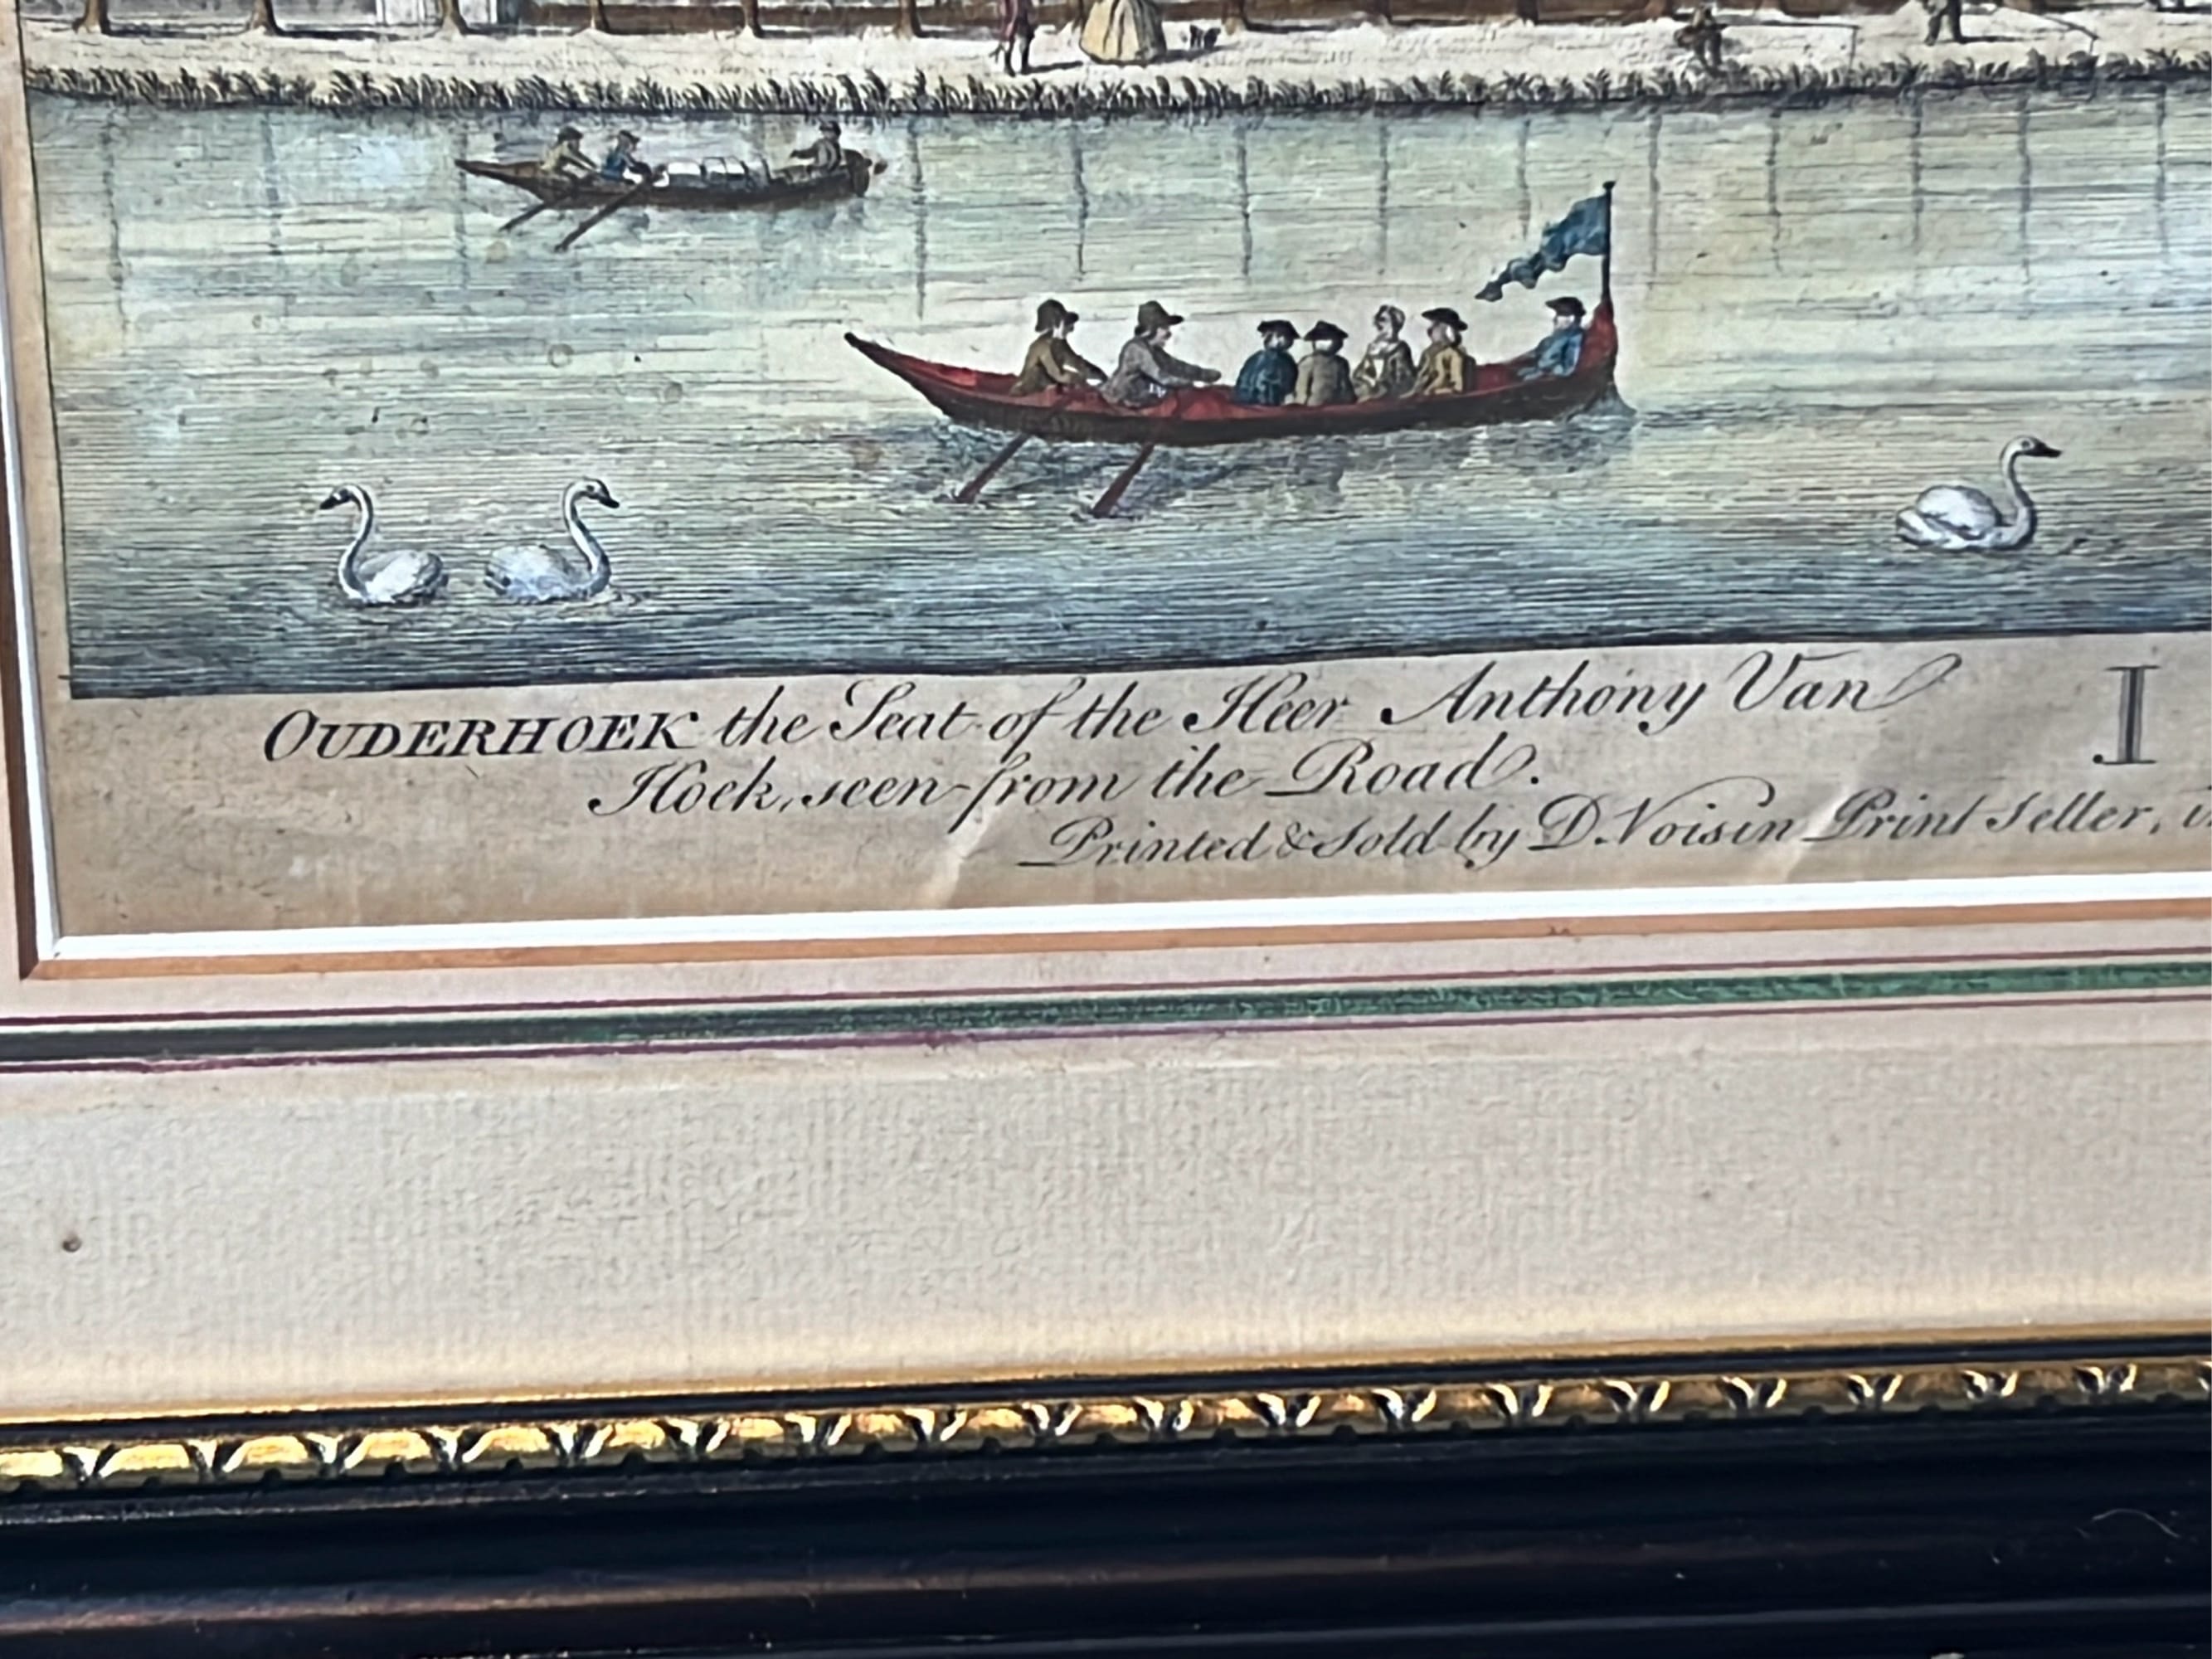 OUDERHOEK the Seat of the Heer Anthony Van
Hoek, seen from the Road.
I
Printed & Sold by D. Voisin Print Seller,